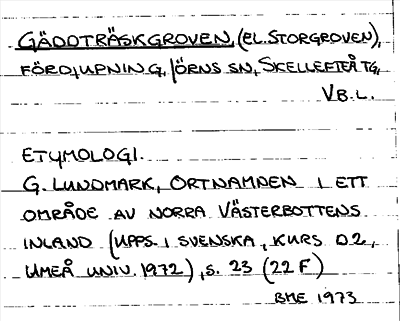 GÄDDTRÄSKGROVEN, (EL. STORGROVEN),
FÖRDJUPNING, JÖRNS SN, SKELLEFTEÅ TG,
VB. L.
ETYMOLOGI.
G. LUNDMARK, ORTNAMNEN I ETT
OMRÅDE AV NORRA VÄSTERBOTTENS
INLAND (UPPS. I SVENSKA, KURS D2,
UMEÅ UNIV. 1972), S. 23 (22 F)
BME 1973